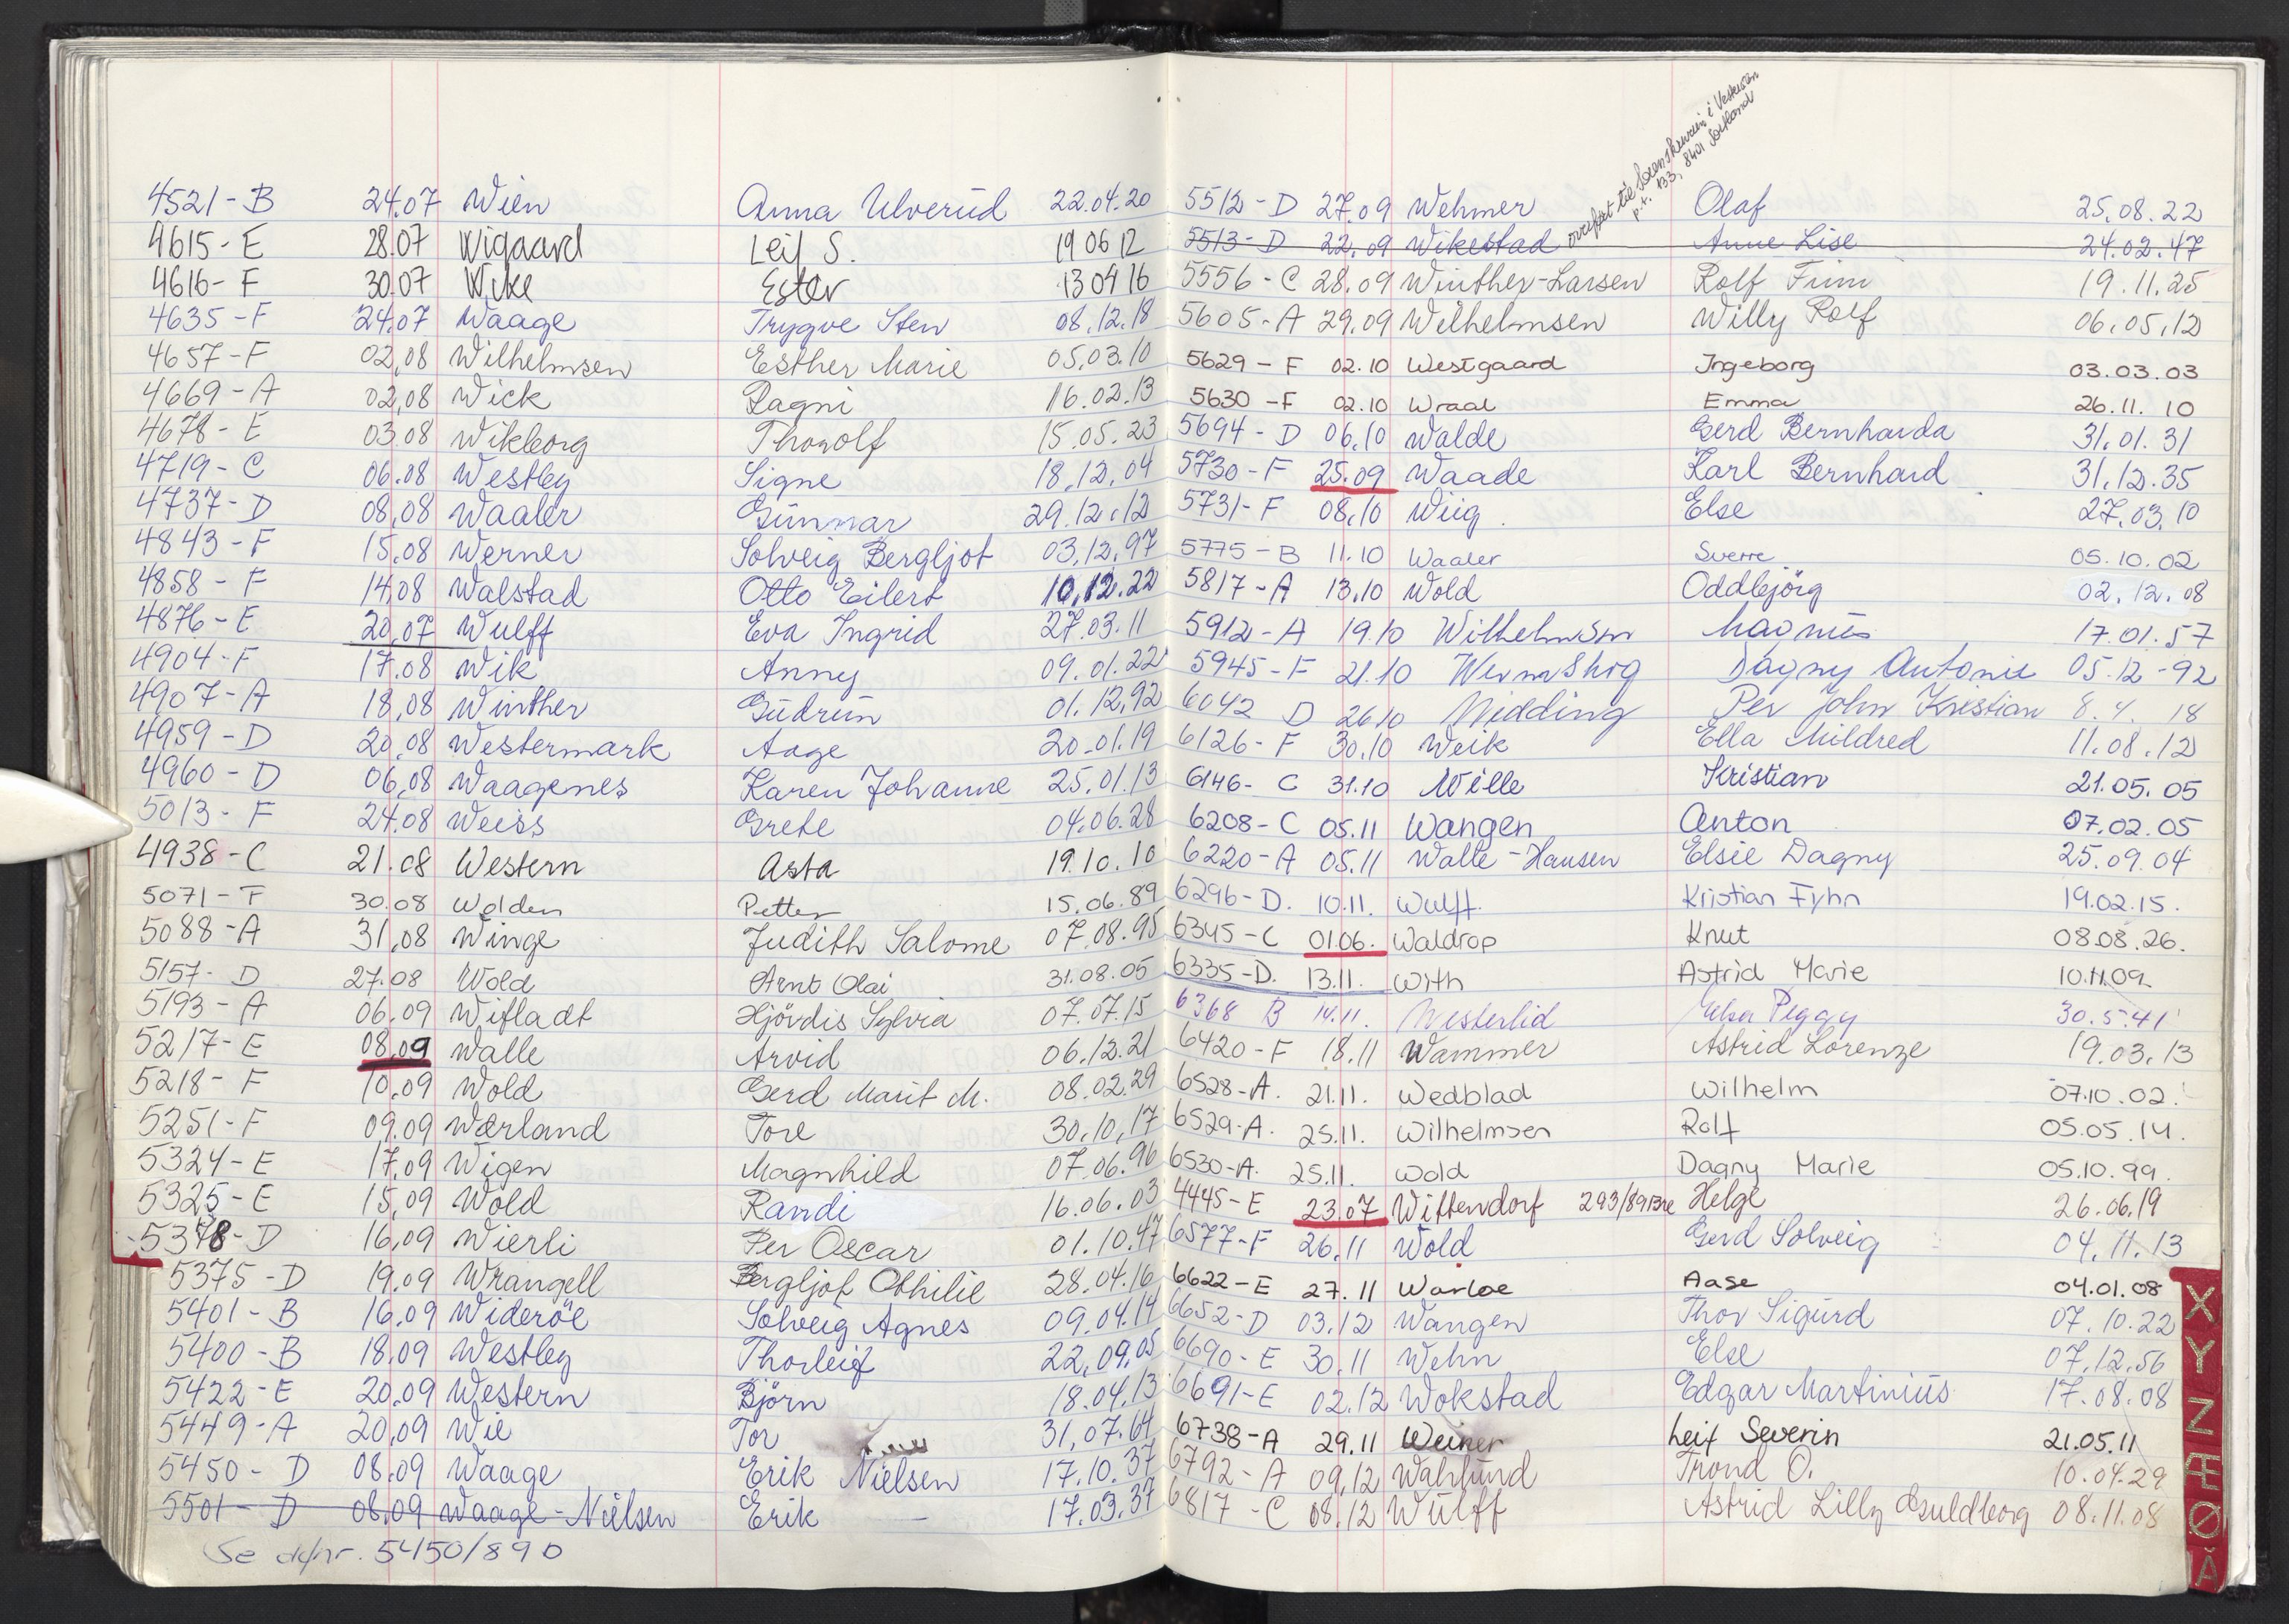 4521-B 24.07 Wien Anna Ulverud 22.04.20
4615-E 28.07 Wigaard Leif S. 19 06 12
4616-F 30.07 Wike Ester 13 04 16
4635-F 24.07 Waage Trygve Sten 08.12.18
4657-F 02.08 Wilhelmsen Esther Marie 05.03.10
4669-A 02.08 Wick Ragni 16.02.13
4678-E 03.08 Wikborg Thorolf 15.05.23
4719-C 06.08 Westby Signe 18.12.04
4737-D 08.08 Waaler Gunnar 29.12.12
4843-F 15.08 Werner Solveig Bergljot 03.12.97
4858-F 14.08 Walstad Otto Eilert 10.12.22
4876-E 20.07 Wulff Eva Ingrid 27.03.11
4904-F 17.08 Wik Anny 09.01.22
4907-A 18.08 Winther Gudrun 01.12.92
4959-D 20.08 Westermark Aage 20.01.19
4960-D 06.08 Waagenes Karen Johanne 25.01.13
5013-F 24.08 Weiss Grete 04.06.28
4938-C 21.08 Western Asta 19.10.10
5071-F 30.08 Wolden Petter 15.06.89
5088-A 31.08 Winge Judith Salome 07.08.95
5157-D 27.08 Wold Arnt Olai 31.08.05
5193-A 06.09 Wifladt Hjördis Sylvia 07.07.15
5217-E 08.09 Walle Arvid 06.12.21
5218-F 10.09 Wold Gerd Marit M. 08.02.29
5251-F 09.09 Wærland Tore 30.10.17
5324-E 17.09 Wigen Magnhild 07.06.96
5325-E 15.09 Wold Randi 16.06.03
5378-D 16.09 Wierli Per Oscar 01.10.47
5375-D 19.09 Wrangell Bergljot Othilie 28.04.16
5401-B 16.09 Wideröe Solveig Agnes 09.04.14
5400-B 18.09 Westby Thorleif 22.09.05
5422-E 20.09 Western Björn 18.04.13
5449-A 20.09 Wie Tor 31.07.64
5450-D 08.09 Waage Erik Nielsen 17.10.37
5501-D 08.09 Waage-Nielsen Erik - 17.03.37
Se d/nr. 5450/89 D
overført til Sorenskriveren i Vesterålen
p.t. 133, 8401 Sortland
5512-D 27.09 Wehmer Olaf 25.08.22
5513-D 22.09 Wikestad Anne Lise 24.02.47
5556-C 28.09 Winther-Larsen Rolf Finn 19.11.25
5605-A 29.09 Wilhelmsen Willy Rolf 06.05.12
5629-F 02.10 Westgaard Ingeborg 03.03.03
5630-F 02.10 Wraal Emma 26.11.10
5694-D 06.10 Walde Gerd Bernharda 31.01.31
5730-F 25.09 Waade Karl Bernhard 31.12.35
5731-F 08.10 Wiig Else 27.03.10
5775-B 11.10 Waaler Sverre 05.10.02
5817-A 13.10 Wold Oddbjörg 02.12.08
5912-A 19.10 Wilhelmsen Magnus 17.01.57
5945-F 21.10 Wermskog Dagny Antonie 05.12-92
6042 D 26.10 Widding Per John Kristian 8.4.18
6126-F 30.10 Weik Ella Mildred 11.08.12
6146-C 31.10 Wille Kristian 21.05.05
6208-C 05.11 Wangen Anton 07.02.05
6220-A 05.11 Walle-Hansen Elsie Dagny 25.09.04
6296-D. 10.11. Wulff. Kristian Fyhn 19.02.15.
6345-C 01.06. Waldrop Knut 08.08.26.
6335-D. 13.11. With Astrid Marie 10.11.09.
6368 B 14.11. Westerlid Peggy 30.5.41
6420-F 18.11 Wammer Astrid Lorenze 19.03.13
6528-A. 21.11. Wedblad Wilhelm 07.10.02.
6529-A. 25.11. Wilhelmsen Rolf 05.05.14.
6530-A. 25.11. Wold Dagny Marie 05.10.99.
4445-E 23.07 Wittendorf 293/89 Bre Helge 26.06.19
6577-F 26.11 Wold Gerd Solveig 04.11.13
6622-E 27.11 Warloe Aase 04.01.08
6652-D 03.12 Wangen Thor Sigurd 07.10.22
6690-E 30.11 Wehn Else 07.12.56
6691-E 02.12 Wokstad Edgar Martinius 17.08.08
6738-A 29.11 Weiner Leif Severin 21.05.11
6792-A 09.12 Wahlund Trond O. 10.04.29
6817-C 08.12 Wulff Astrid Lilly Guldborg 08.11.08
X
Y
Z
Æ
Ø
Å